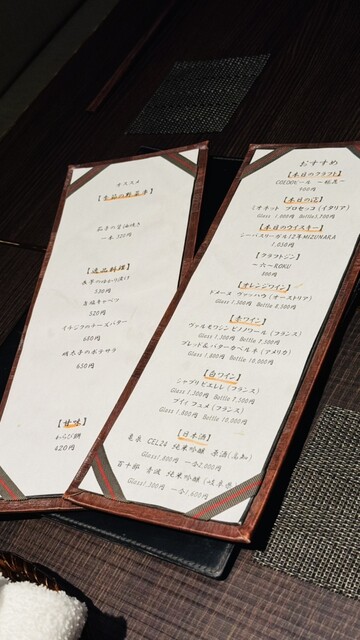 オススメ
【季節の野菜串】
一本 320円
【逸品料理】
530円
塩麹キャベツ
520円
イチジクのチーズバター
680円
岐阜季のポテサラ
650円
【甘味】
わらび餅
620円
おすすめ
【本日のクラフト】
900円
【本日の泡】
ミオネット プロセッコ (イタリア)
Glass 1,000円 Bottle 5,700円
【本日のウイスキー】
シーバスリーガル12年MIZUNARA
1,050円
【クラフトジン】
〜六〜ROKU
800円
【オレンジワイン】
ドメーヌ ヴァッハウ (オーストリア)
Glass 1,500円 Bottle 8,500円
【赤ワイン】
ヴァルモワシン ピノノワール (フランス)
Glass 1,300円 Bottle 7,500円
ブレッド&バター カベルネ (アメリカ)
Glass 1,800円 Bottle 10,000円
【白ワイン】
シャブリ ピエレレ (フランス)
Glass 1,300円 Bottle 7,500円
プイィ フュメ (フランス)
Glass 1,800円 Bottle 10,000円
【日本酒】
亀泉 CEL24 純米吟醸 原酒(高知)
Glass 1,800円 一合2,000円
百十郎 青波 純米吟醸 (岐阜県)
Glass 1,300円 一合1,600円